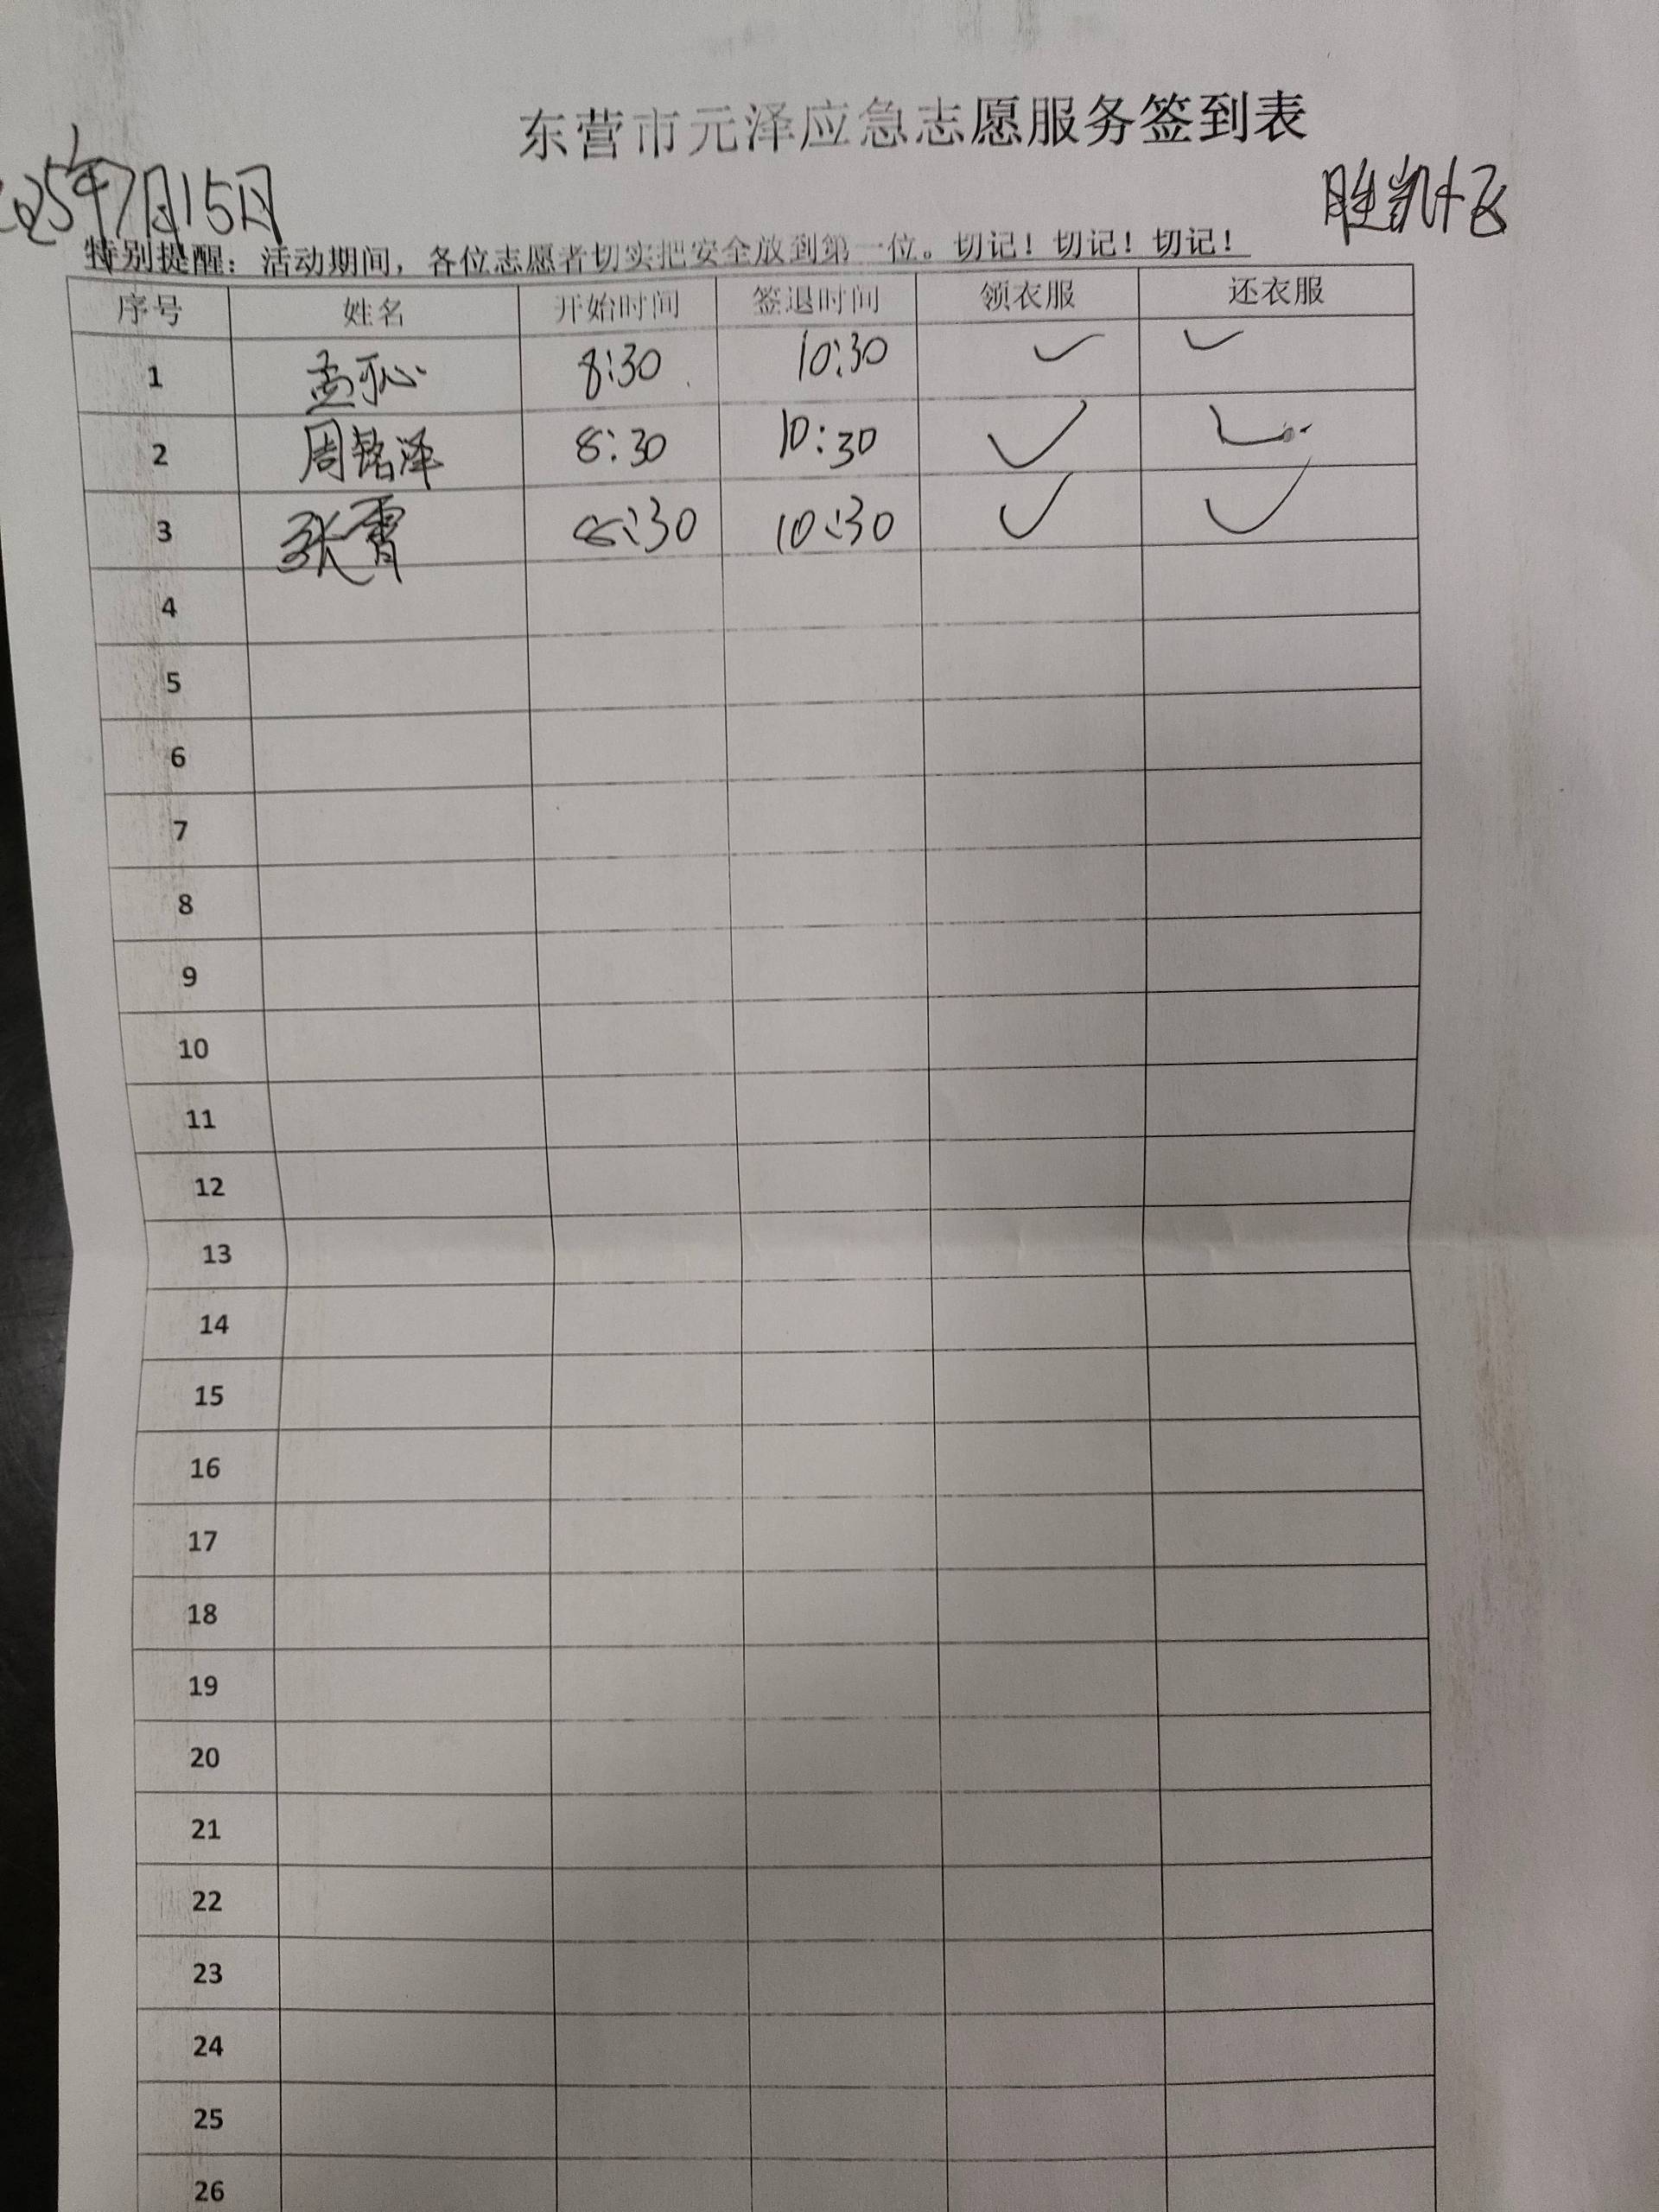 东营市元泽应急志愿服务签到表
2025年7月15日
胜凯
特别提醒：活动期间，各位志愿者切实把安全放到第一位。切记！切记！切记！
序号 姓名 开始时间 签退时间 领衣服 还衣服
1 孟 8:30 10:30 ✓ ✓
2 周铭泽 8:30 10:30 ✓ ✓
3 张霄 8:30 10:30 ✓ ✓
4
5
6
7
8
9
10
11
12
13
14
15
16
17
18
19
20
21
22
23
24
25
26